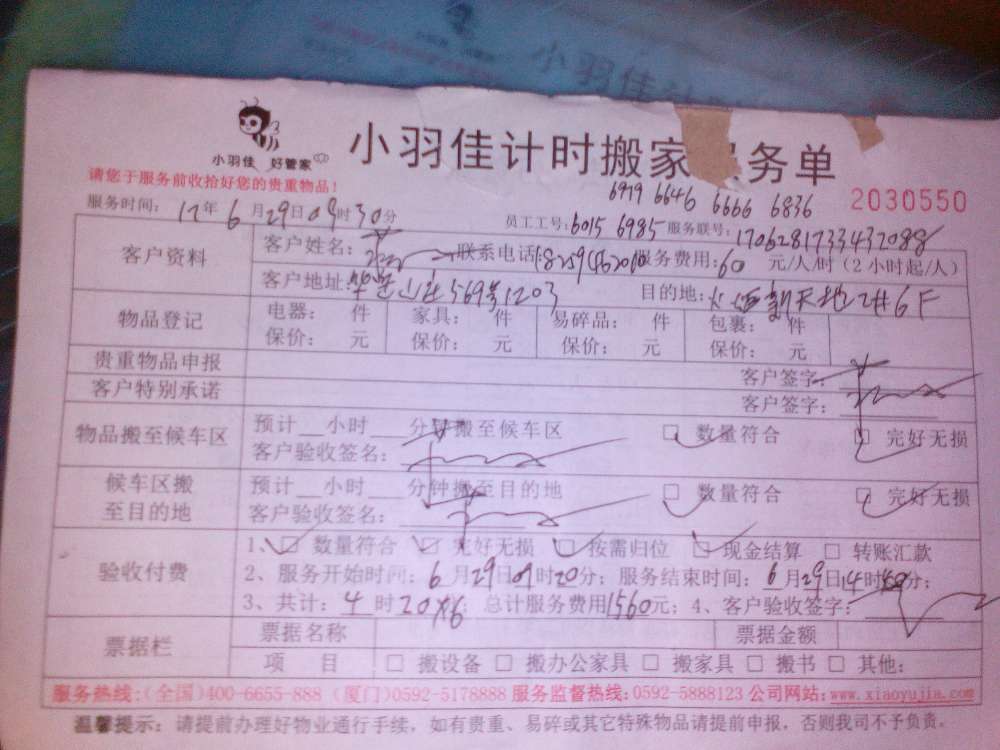 小羽佳 好管家
小羽佳计时搬家服务单
请您于服务前收拾好您的贵重物品！
6979 6646 6666 6836
2030550
服务时间：12年6月29日09时30分 员工工号：6015 6985 服务联号：1706281733437088
客户资料 客户姓名： 联系电话： 服务费用：60 元/人/时（2小时起/人）
客户地址： 569号1203 目的地： 新天地 6F
物品登记 电器： 件 家具： 件 易碎品： 件 包裹： 件
保价： 元 保价： 元 保价： 元 保价： 元
贵重物品申报 客户签字：
客户特别承诺 客户签字：
物品搬至候车区 预计__小时__分钟搬至候车区 □ 数量符合 □ 完好无损
客户验收签名：
候车区搬至目的地 预计__小时__分钟搬至目的地 □ 数量符合 □ 完好无损
客户验收签名：
验收付费 1、□ 数量符合 □ 完好无损 □ 按需归位 □ 现金结算 □ 转账汇款
2、服务开始时间：6月29日09时20分；服务结束时间：6月29日14时 分；
3、共计：4时20×6；总计服务费用1560元；4、客户验收签字：
票据栏 票据名称 票据金额
项 目 □ 搬设备 □ 搬办公家具 □ 搬家具 □ 搬书 □ 其他：
服务热线：(全国)400-6655-888 (厦门)0592-5178888 服务监督热线：0592-5888123 公司网站：www.xiaoyujia.com
温馨提示：请提前办理好物业通行手续，如有贵重、易碎或其它特殊物品请提前申报，否则我司不予负责。